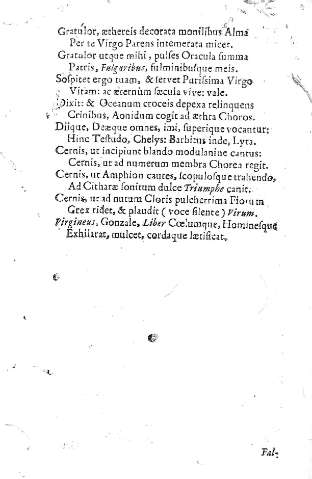 Gratulor, æthereis decorata monilibus Alma
Per te Virgo Parens intemerata micet.
Gratulor utque mihi, pulses Oracula summa
Patris, Fulguribus, fulminibusque meis.
Sospitet ergo tuam, & servet Purissima Virgo
Vitam: ac æternùm sæcula vive: vale.
Dixit: & Oceanum croceis depexa relinquens
Crinibus, Aonidum cogit ad æthra Choros.
Diique, Deæque omnes, imi, superique vocantur:
Hinc Testudo, Chelys: Barbitus inde, Lyra.
Cernis, ut incipiunt blando modulamine cantus:
Cernis, ut ad numerum membra Chorea regit.
Cernis, ut Amphion cautes, scopulosque trahendo,
Ad Citharæ sonitum dulce Triumphe canit.
Cernis, ut ad nutum Cloris pulcherrima Florum
Grex ridet, & plaudit ( voce silente ) Virum.
Virgineus, Gonzale, Liber Cœlumque, Hominesque
Exhilarat, mulcet, cordaque lætificat.
Fal-